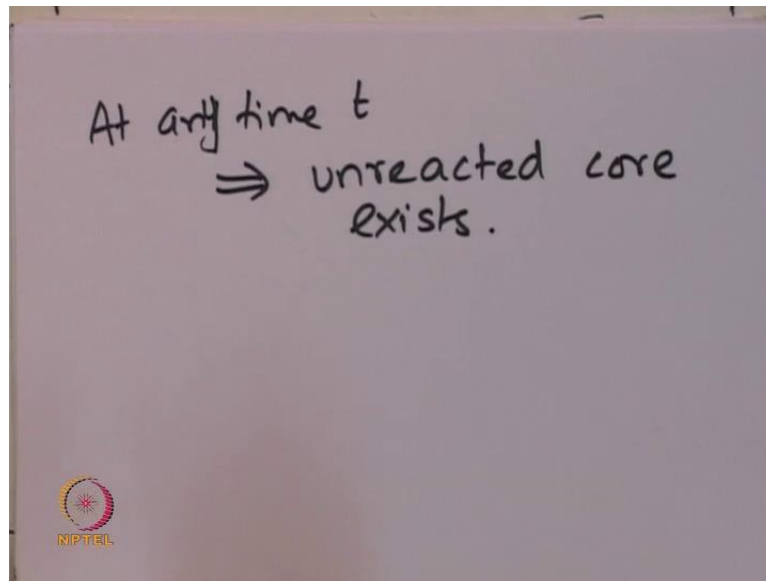 At any time t
⇒ unreacted core
exists.
NPTEL